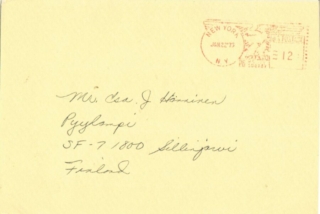 NEW YORK
N.Y.
12
Mr. Esa J Hänninen
Pyylampi
SF-71800 Siilinjärvi
Finland